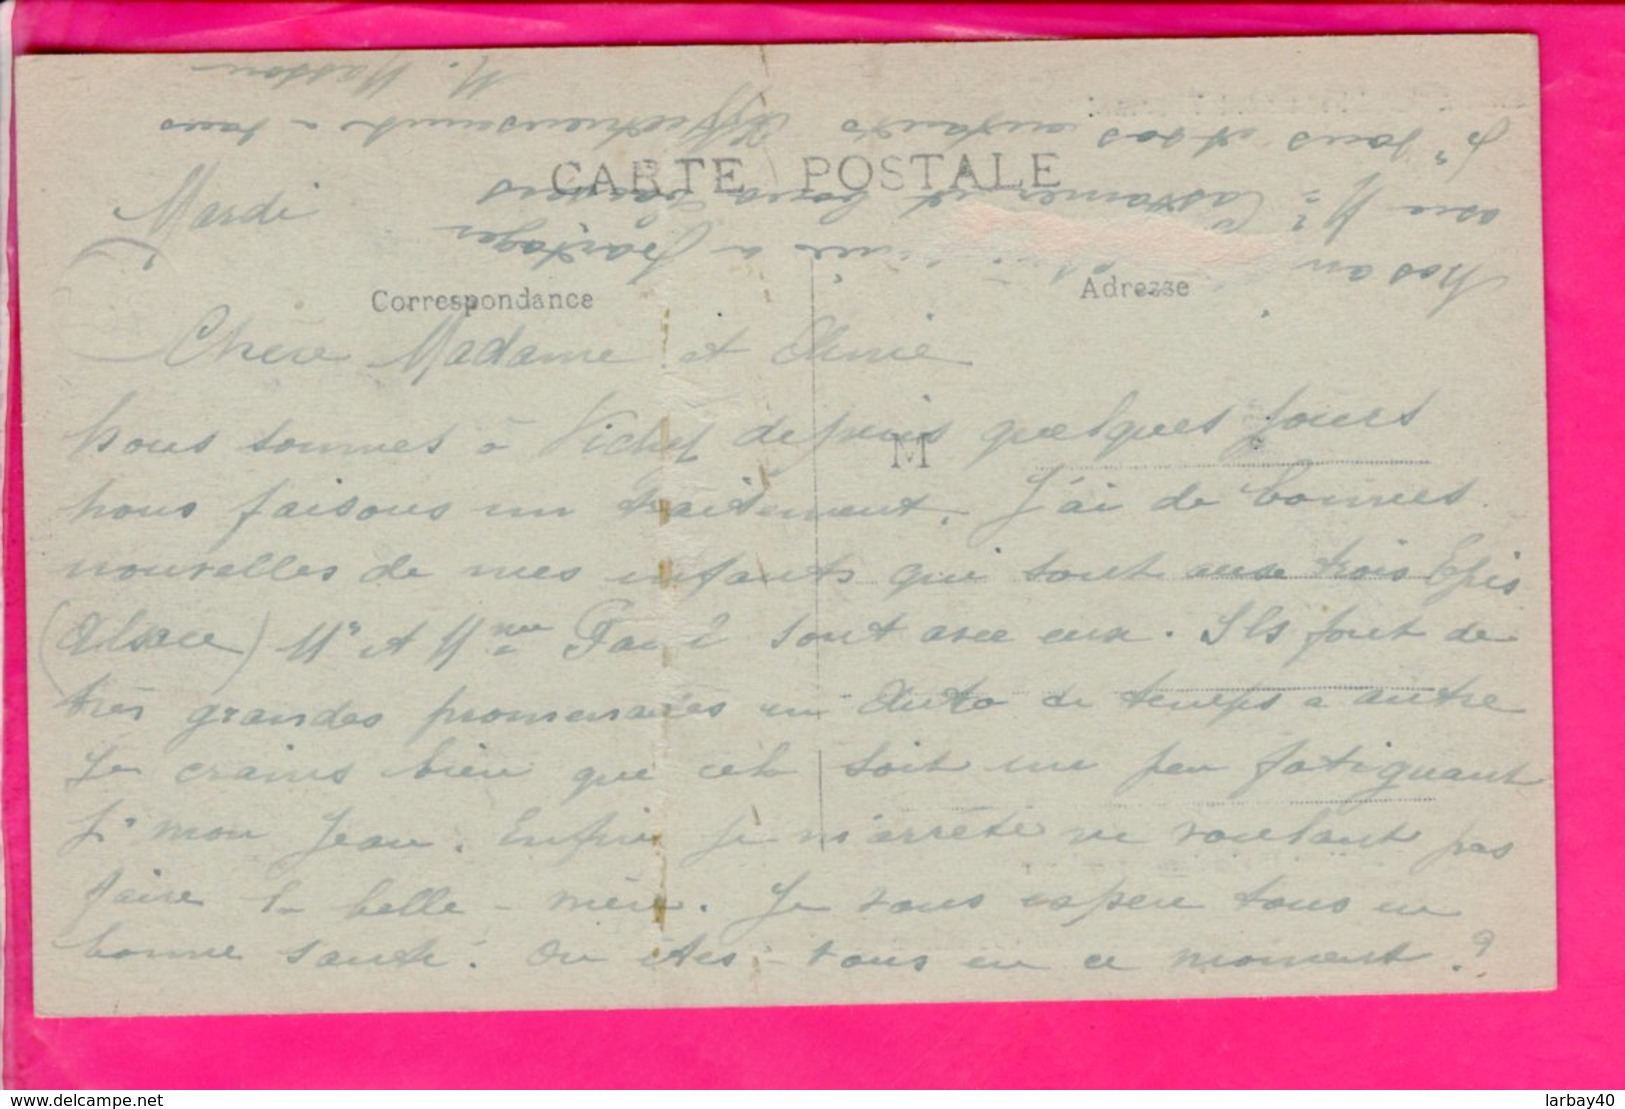 CARTE POSTALE
Mardi
Correspondance
Adresse
Chère Madame et Amie
M
Nous sommes à Vichy depuis quelques jours
nous faisons un traitement. J'ai de bonnes
nouvelles de mes enfants qui sont aux trois Epis
(Alsace) Mr et Mme sont avec eux. Ils font de
très grandes promenades en Auto de temps a autre
Je crains bien que cela soit un peu fatiguant
pr mon Jean. Enfin je m'arrête ne voulant pas
faire la belle-mère. Je vous espère tous en
bonne santé. Ou êtes-vous en ce moment ?
Nos a partager
avec Me Castanier et bons baisers
pr vous et vos enfants Affectueusement a vous
M. Masson
www.delcampe.net
larbay40